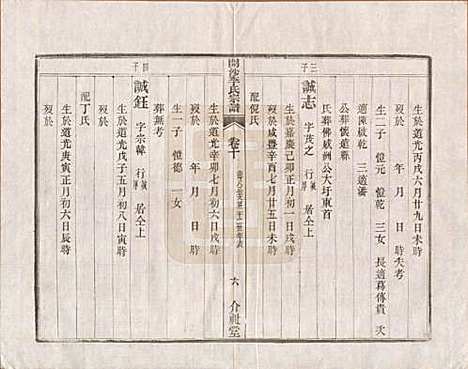 生於道光丙戌六月廿九日未時
歿於 年月日時失考
生二子 愷元 愷乾 三女 長適葛傳貴 次
適陳啟乾 三適潘
公葬儀遠縣
氏葬佛感洲公大圩東首
三子
誠志 字茂之 行 居仝上
生於嘉慶己卯正月初一日戌時
歿於咸豐辛酉七月廿五日未時
配倪氏
開沙李氏宗譜
卷十
六
介祉堂
生於道光辛卯七月初六日戌時
歿於 年 月 日 時
生一子 愷德 一女
葬無考
四子
誠鈺 字宗韓 行 居仝上
生於道光戊子五月初八日寅時
歿於 年 月 日 時
配丁氏
生於道光庚寅正月初六日辰時
歿於